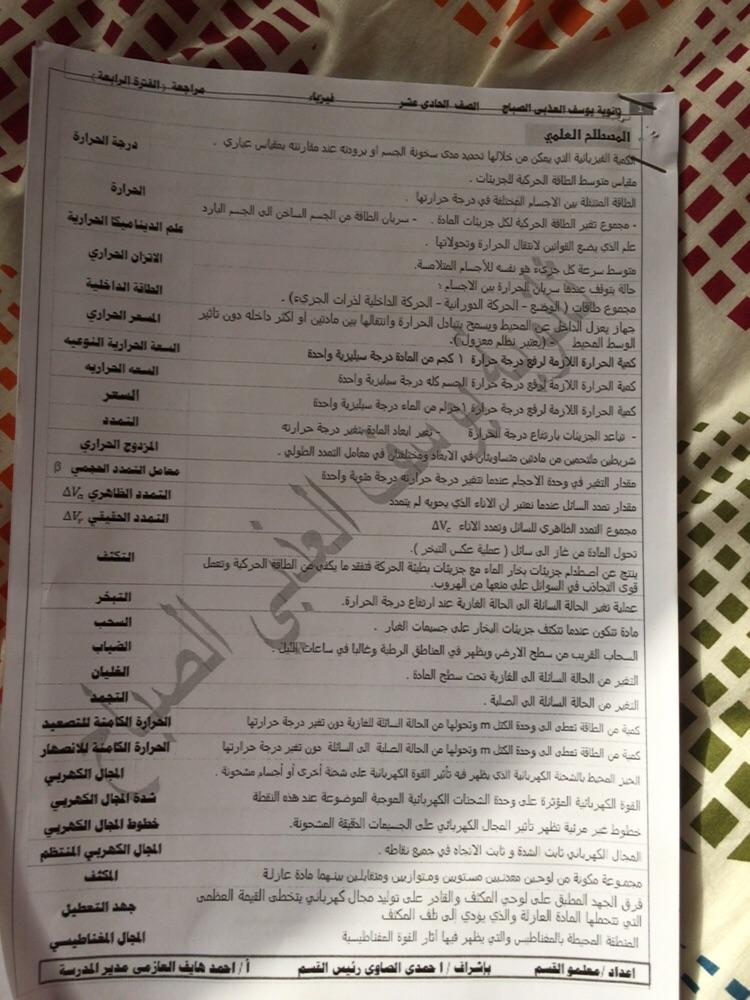 1 ثانوية يوسف العذبي الصباح الصف الحادي عشر فيزياء مراجعة (الفترة الرابعة)
المصطلح العلمي
الكمية الفيزيائية التي يمكن من خلالها تحديد مدى سخونة الجسم او برودته عند مقارنته بمقياس عياري . درجة الحرارة
مقياس متوسط الطاقة الحركية للجزيئات .
الطاقة المنتقلة بين الاجسام المختلفة في درجة حرارتها . الحرارة
- مجموع تغير الطاقة الحركية لكل جزيئات المادة . - سريان الطاقة من الجسم الساخن الى الجسم البارد
علم الذي يضع القوانين لانتقال الحرارة وتحولاتها . علم الديناميكا الحرارية
متوسط سرعة كل جزيء هو نفسه للأجسام المتلامسة. الاتزان الحراري
حالة يتوقف عندها سريان الحرارة بين الاجسام ؛
مجموع طاقات ( الوضع - الحركة الدورانية - الحركة الداخلية لذرات الجزيء) . الطاقة الداخلية
جهاز يعزل الداخل عن المحيط ويسمح بتبادل الحرارة وانتقالها بين مادتين او اكثر داخله دون تأثير المسعر الحراري
الوسط المحيط - (يعتبر نظام معزول).
كمية الحرارة اللازمة لرفع درجة حرارة ١ كجم من المادة درجة سيليزية واحدة السعة الحرارية النوعيه
كمية الحرارة اللازمة لرفع درجة حرارة الجسم كله درجة سيليزية واحدة السعه الحراريه
كمية الحرارة اللازمة لرفع درجة حرارة ١جرام من الماء درجة سيليزية واحدة السعر
- تباعد الجزيئات بارتفاع درجة الحرارة - تغير ابعاد المادة بتغير درجة حرارته التمدد
شريطين ملتحمين من مادتين متساويتان في الابعاد ومختلفتان في معامل التمدد الطولي . المزدوج الحراري
مقدار التغير في وحدة الاحجام عندما تتغير درجة حرارته درجة مئوية واحدة معامل التمدد الحجمي β
مقدار تمدد السائل عندما نعتبر ان الاناء الذي يحويه لم يتمدد التمدد الظاهري ΔVa
مجموع التمدد الظاهري للسائل وتمدد الاناء ΔVc التمدد الحقيقي ΔVr
تحول المادة من غاز الى سائل ( عملية عكس التبخر ). التكثف
ينتج عن اصطدام جزيئات بخار الماء مع جزيئات بطيئة الحركة فتفقد ما يكفي من الطاقة الحركية وتعمل
قوى التجاذب في السوائل على منعها من الهروب.
عملية تغير الحالة السائلة الى الحالة الغازية عند ارتفاع درجة الحرارة. التبخر
مادة تتكون عندما تتكثف جزيئات البخار على جسيمات الغبار . السحب
السحاب القريب من سطح الارض ويظهر في المناطق الرطبة وغالبا في ساعات الليل . الضباب
التغير من الحالة السائلة الى الغازية تحت سطح المادة . الغليان
التغير من الحالة السائلة الى الصلبة . التجمد
كمية من الطاقة تعطى الى وحدة الكتل m وتحولها من الحالة السائلة للغازية دون تغير درجة حرارتها الحرارة الكامنة للتصعيد
كمية من الطاقة تعطى الى وحدة الكتل m وتحولها من الحالة الصلبة الى السائلة دون تغير درجة حرارتها الحرارة الكامنة للانصهار
الحيز المحيط بالشحنة الكهربائية الذي يظهر فيه تأثير القوة الكهربائية على شحنة أخرى أو أجسام مشحونة . المجال الكهربي
القوة الكهربائية المؤثرة على وحدة الشحنات الكهربائية الموجبة الموضوعة عند هذه النقطة شدة المجال الكهربي
خطوط غير مرئية تظهر تأثير المجال الكهربائي على الجسيمات الدقيقة المشحونة. خطوط المجال الكهربي
المجال الكهربائي ثابت الشدة و ثابت الاتجاه في جميع نقاطه . المجال الكهربي المنتظم
مجموعة مكونة من لوحين معدنيين مستويين ومتوازيين ومتقابلين بينهما مادة عازلة المكثف
فرق الجهد المطبق على لوحي المكثف والقادر على توليد مجال كهربائي يتخطى القيمة العظمى جهد التعطيل
التي تتحملها المادة العازلة والذي يؤدي إلى تلف المكثف
المنطقة المحيطة بالمغناطيس والتي يظهر فيها آثار القوة المغناطيسية المجال المغناطيسي
اعداد / معلمو القسم بإشراف / ا حمدي الصاوي رئيس القسم أ / احمد هايف العازمى مدير المدرسة
ثانوية يوسف العذبي الصباح